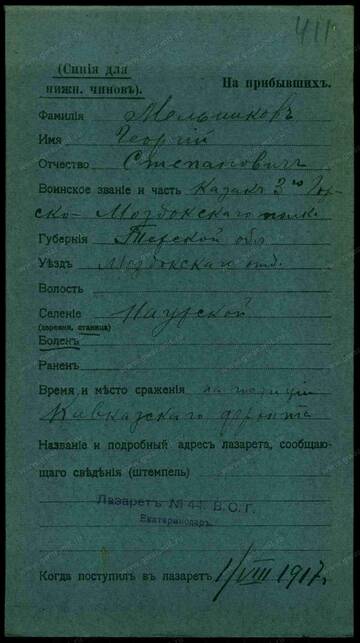 411.
(Синія для
нижн. чиновъ).
На прибывшихъ.
Фамилія Мельниковъ
Имя Георгій
Отчество Степановичъ
Воинское званіе и часть казакъ 3го Гор-
ско-Моздокскаго полка
Губернія Терской обл
Уѣздъ Моздокскаго отд.
Волость
Селеніе Наурской
(деревня, станица)
Боленъ
Раненъ
Время и мѣсто сраженія на позиціи
Кавказскаго фронта
Названіе и подробный адресъ лазарета, сообщаю-
щаго свѣдѣнія (штемпель)
Лазаретъ № 44. В.С.Г.
Екатеринодаръ.
Когда поступилъ въ лазаретъ 1/VIII 1917.